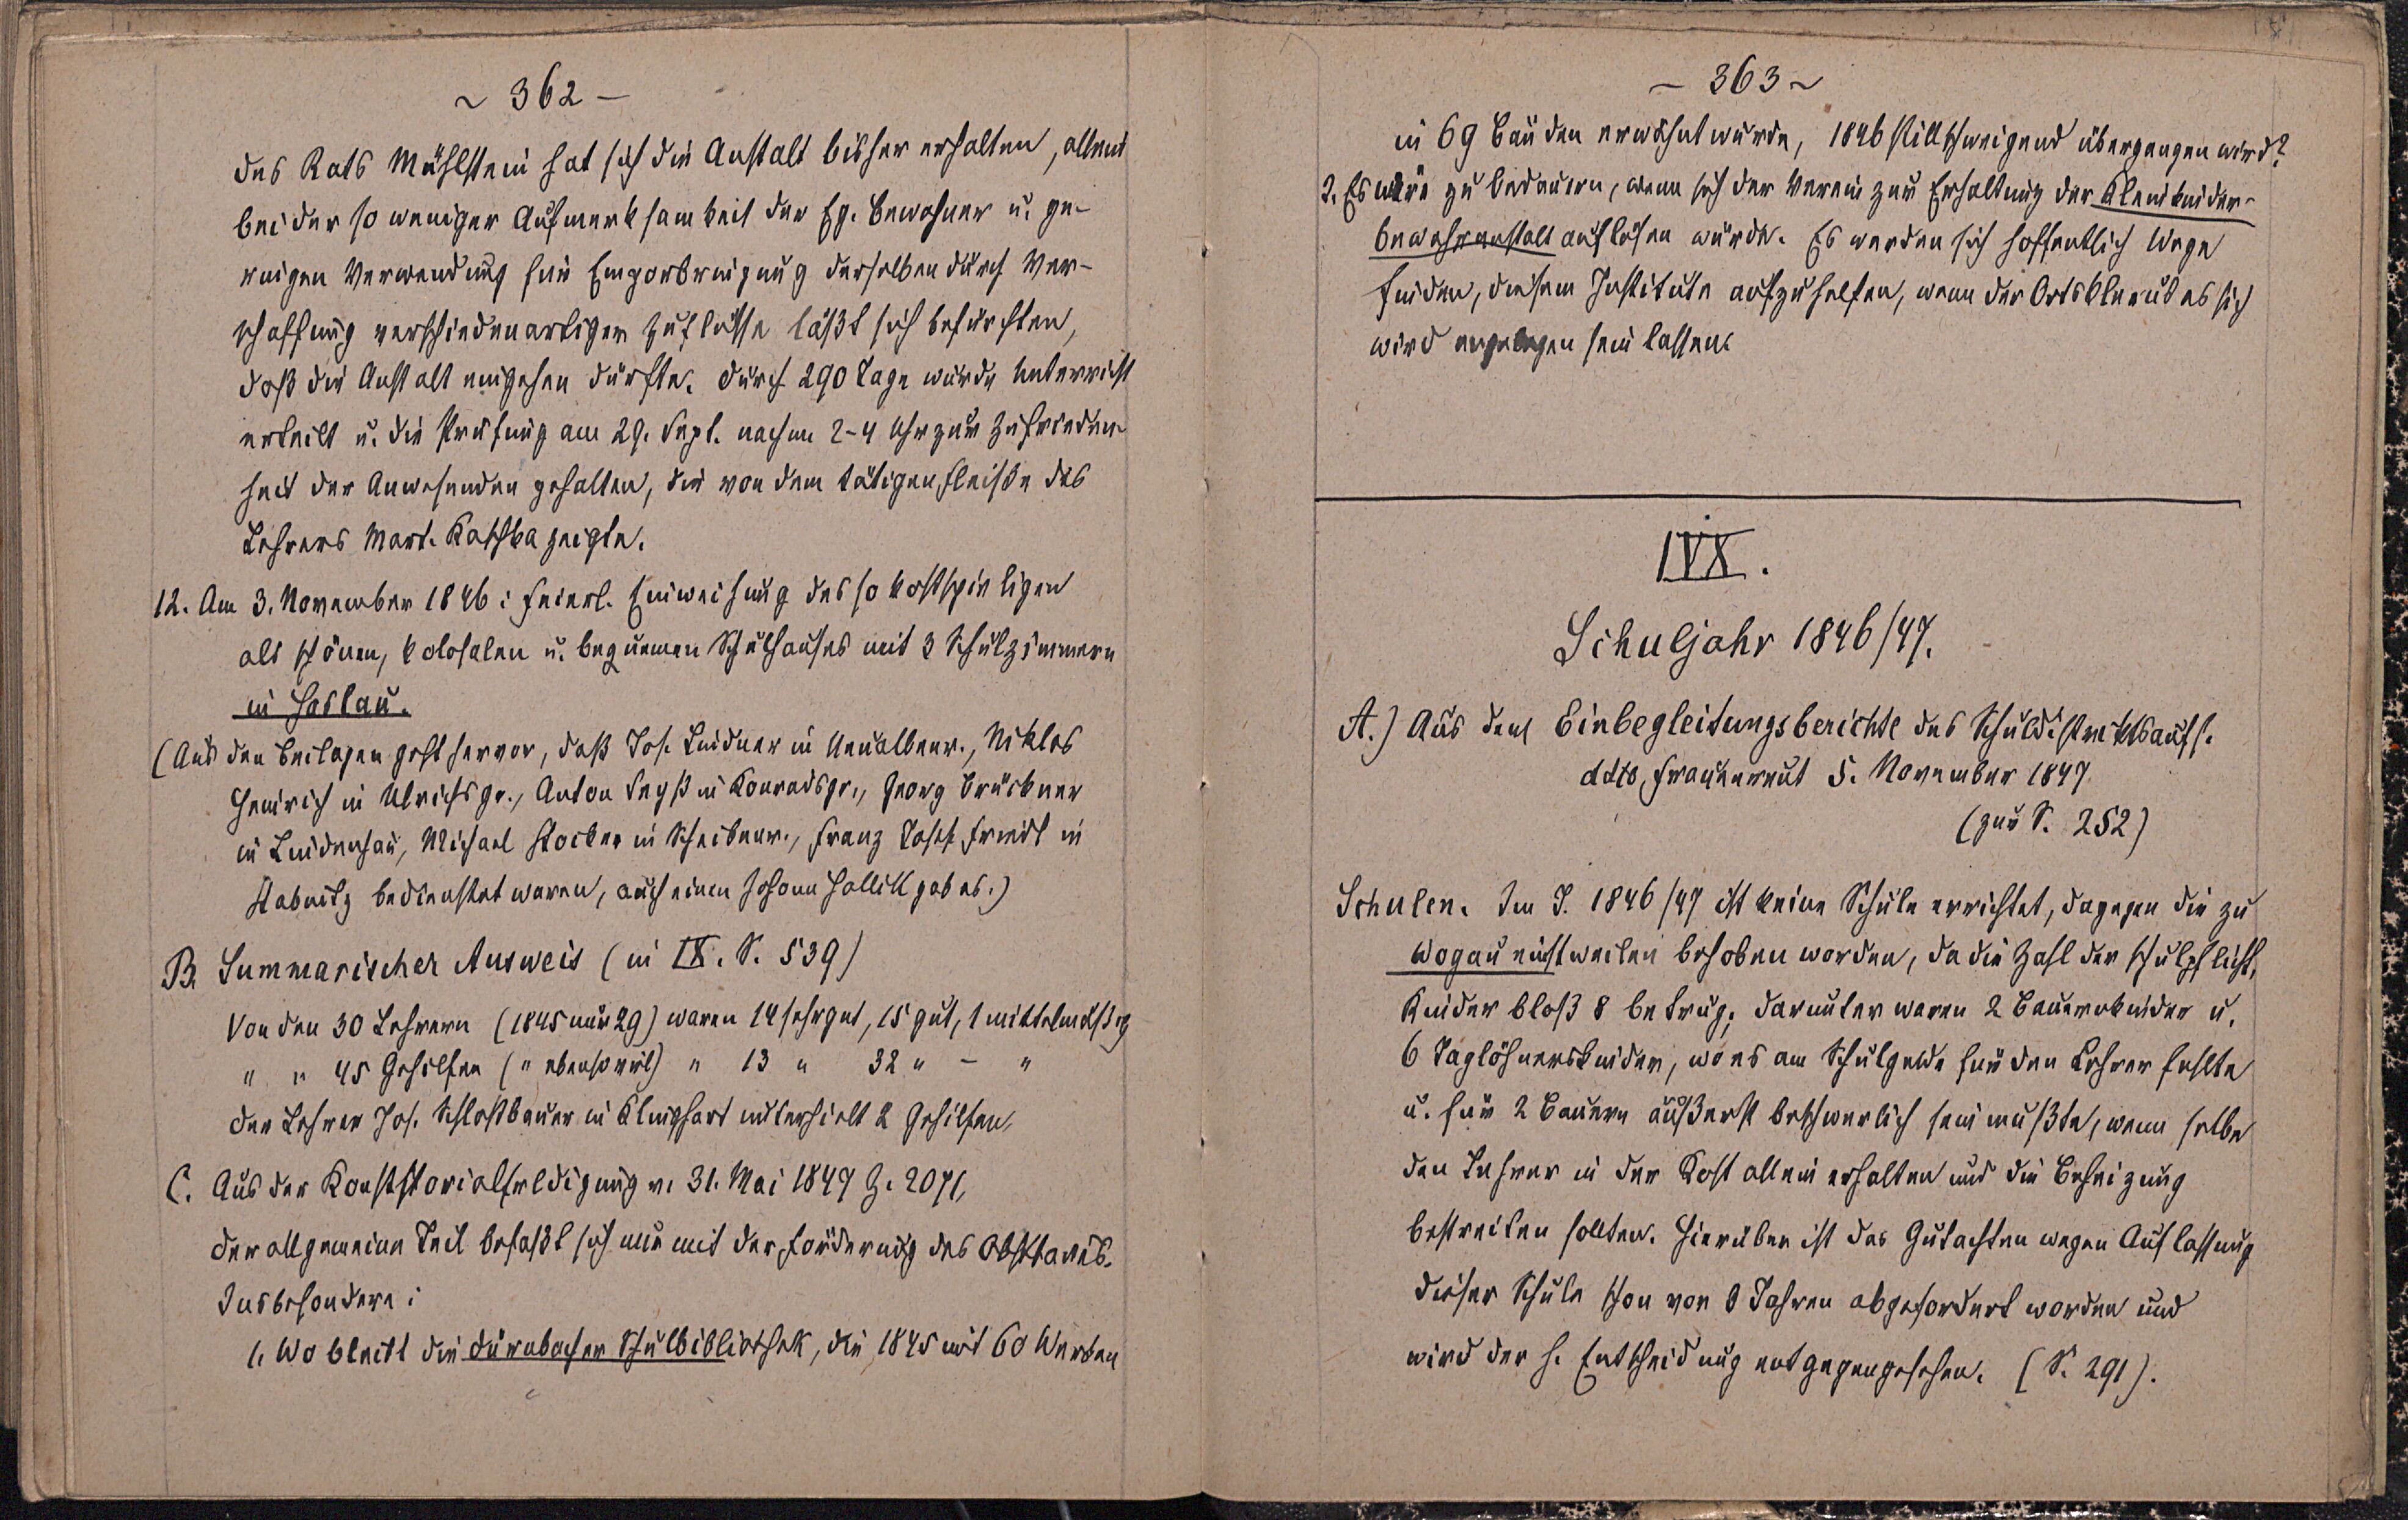 ~ 362 —
des Rats Mühlstein hat sich die Anstalt bisher erhalten, allein
bei der so weniger Aufmerksamkeit der Eg. Bewohner u. ge-
ringen Verwendung für Emporbringung derselben durch Ver-
schaffung verschiedenartiger Zuflüsse läßt sich befürchten,
daß die Anstalt eingehen dürfte. Durch 290 Tage wurde Unterricht
erteilt u. die Prüfung am 29. Sept. nachm 2-4 Uhr zur Zufrieden-
heit der Anwesenden gehalten, die von dem tätigen Fleiße des
Lehrers Mart. Kaschka zeigte.
12. Am 3. November 1846: feierl. Einweihung des so kostspieligen
als schönen, kolosalen u. bequemen Schulhauses mit 3 Schulzimmern
in Haslau.
(Aus den Beilagen geht hervor, daß Jos. Lindner in Neualbenr., Niklas
Heinrich in Ulrichsgr., Anton Seyß in Konradsgr., Georg Brückner
in Lindenhau, Michael Stocker in Scheibenr., Franz Josef Friedl in
Stabnitz bedienstet waren, auch einen Johann Hallik gab es.)
B. Summarischer Ausweis (in IX. S. 539)
Von den 30 Lehrern (1845 nur 29) waren 14 sehr gut, 15 gut, 1 mittelmäßig
" " 45 Gehilfen (" ebensoviel) " 13 " 32 " — "
Der Lehrer Jos. Schloßbauer in Klinghart unterhielt 2 Gehilfen.
C. Aus der Konsistorialerledigung v. 31. Mai 1847 Z. 2071,
Der allgemeine Teil befaßt sich nur mit der Förderung des Obstbaues.
Insbesondere:
1. Wo bleibt die Dürnbacher Schulbibliothek, die 1845 mit 60 Werken
— 363 ~
in 69 Bänden erwähnt wurde, 1846 stillschweigend übergangen wird?
2. Es wäre zu bedauern, wenn sich der Verein zur Erhaltung der Kleinkinder-
bewahranstalt auflösen würde. Es werden sich hoffentlich Wege
finden, diesem Institute aufzuhelfen, wenn der Ortsklerus es sich
wird angelegen sein lassen.
IXX.
Schuljahr 1846/47.
A.) Aus dem Einbegleitungsberichte des Schuldistriktsaufs.
ddto Frauenreut 5. November 1847
(zur S. 252)
Schulen. Im J. 1846/47 ist keine Schule errichtet, dagegen die zu
Wogau einstweilen behoben worden, da die Zahl der schulpflicht.
Kinder bloß 8 betrug; darunter waren 2 Bauernkinder u.
6 Taglöhnerskinder, wo es am Schulgelde für den Lehrer fehlte
u. für 2 Bauern äußerst beschwerlich sein mußte, wenn selbe
den Lehrer in der Kost allein erhalten und die Beheizung
bestreiten sollten. Hierüber ist das Gutachten wegen Auflassung
dieser Schule schon vor 8 Jahren abgefordert worden und
wird der h. Entscheidung entgegengesehen. (S. 291).